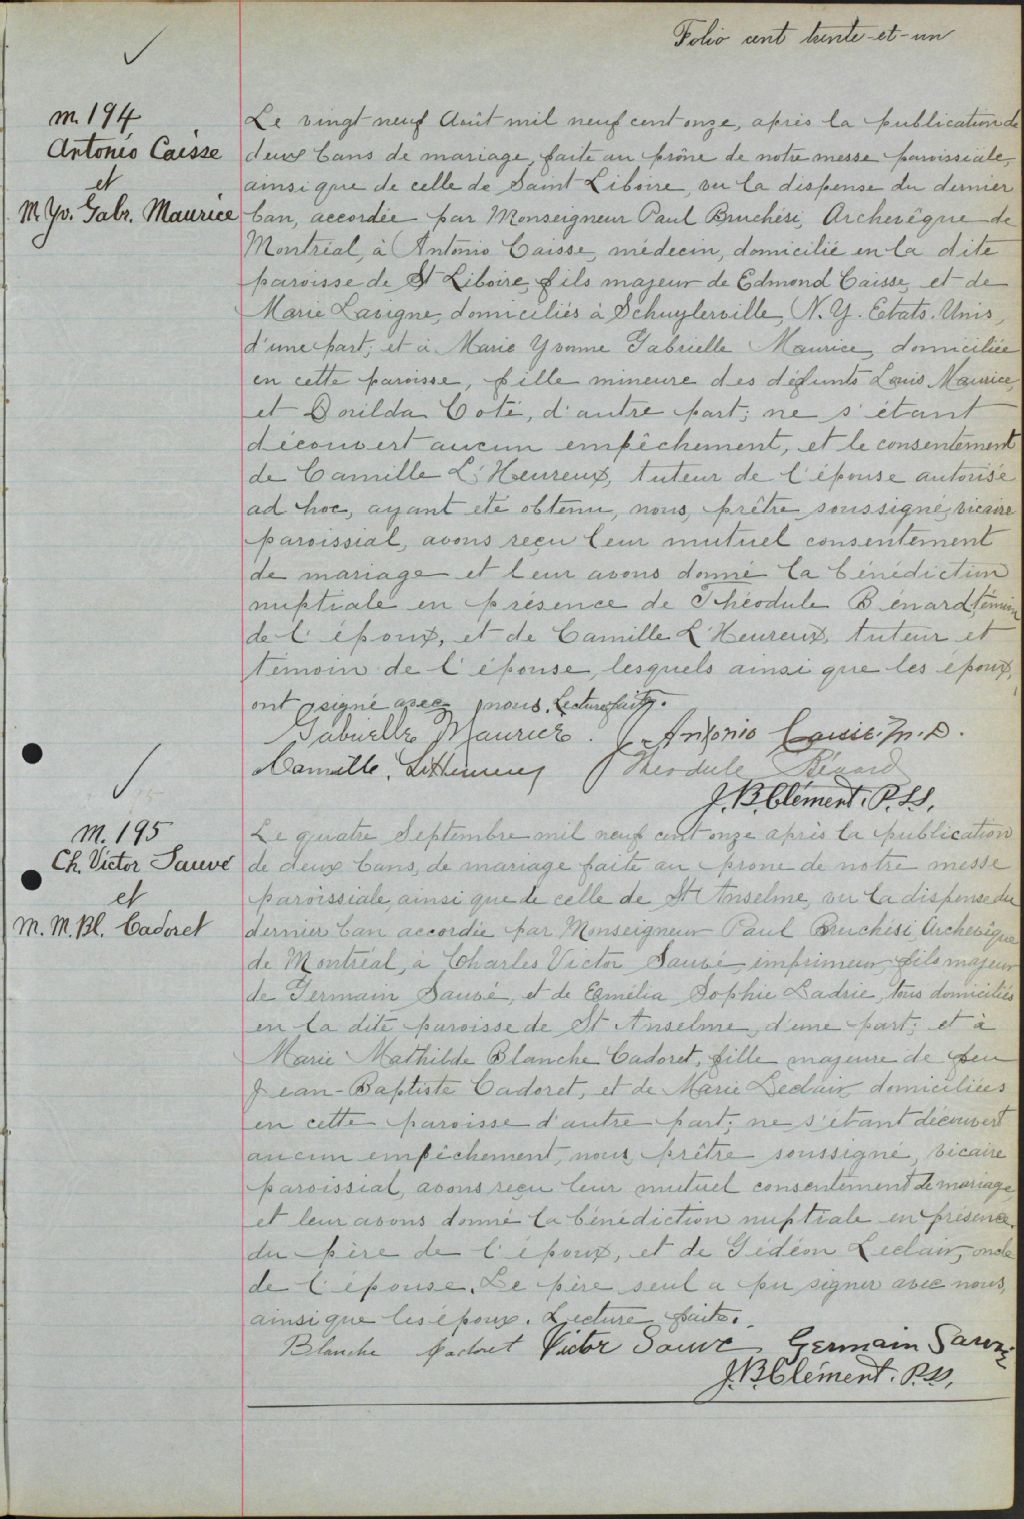 Folio cent trente-et-un
m. 194
Antonio Caisse
et
M. Yv. Gabr. Maurice
Le vingt neuf Août mil neuf cent onze, après la publication de
deux bans de mariage, faite au prône de notre messe paroissiale,
ainsi que de celle de Saint Liboire, vu la dispense du dernier
ban, accordée par Monseigneur Paul Bruchési, Archevêque de
Montréal, à Antonio Caisse, médecin, domicilié en la dite
paroisse de St Liboire, fils majeur de Edmond Caisse, et de
Marie Lavigne, domiciliés à Schuylerville, N. Y. Etats. Unis,
d'une part; et à Marie Yvonne Gabrielle Maurice, domiciliée
en cette paroisse, fille mineure des défunts Louis Maurice,
et Dorilda Coté, d'autre part; ne s'étant
découvert aucun empêchement, et le consentement
de Camille L'Heureux, tuteur de l'épouse autorisé
ad hoc, ayant été obtenu, nous, prêtre soussigné, vicaire
paroissial, avons reçu leur mutuel consentement
de mariage et leur avons donné la bénédiction
nuptiale en présence de Théodule Bénard, témoin
de l'époux, et de Camille L'Heureux, tuteur et
témoin de l'épouse, lesquels ainsi que les époux,
ont signé avec nous. Lecture faite.
Gabrielle Maurice. Antonio Caisse. M. D.
Camille. L'Heureux Theodule Bénard
J. B. Clément. P.S.S.
m. 195
Ch. Victor Sauvé
et
M. M. Bl. Cadoret
Le quatre Septembre mil neuf cent onze après la publication
de deux bans, de mariage faite au prone de notre messe
paroissiale, ainsi que de celle de St Anselme, vu la dispense du
dernier ban accordée par Monseigneur Paul Bruchési, Archevêque
de Montréal, à Charles Victor Sauvé, imprimeur, fils majeur
de Germain Sauvé, et de Emélia Sophie Ladrie, tous domiciliés
en la dite paroisse de St Anselme, d'une part; et à
Marie Mathilde Blanche Cadoret, fille majeure de feu
Jean-Baptiste Cadoret, et de Marie Leclair, domiciliées
en cette paroisse d'autre part; ne s'étant découvert
aucun empêchement, nous, prêtre soussigné, vicaire
paroissial, avons reçu leur mutuel consentement de mariage,
et leur avons donné la bénédiction nuptiale en présence
du père de l'époux, et de Gédéon Leclair, oncle
de l'épouse. Le père seul a pu signer avec nous,
ainsi que les époux. Lecture faite.
Blanche Cadoret Victor Sauvé Germain Sauvé
J. B. Clément. P.S.S.